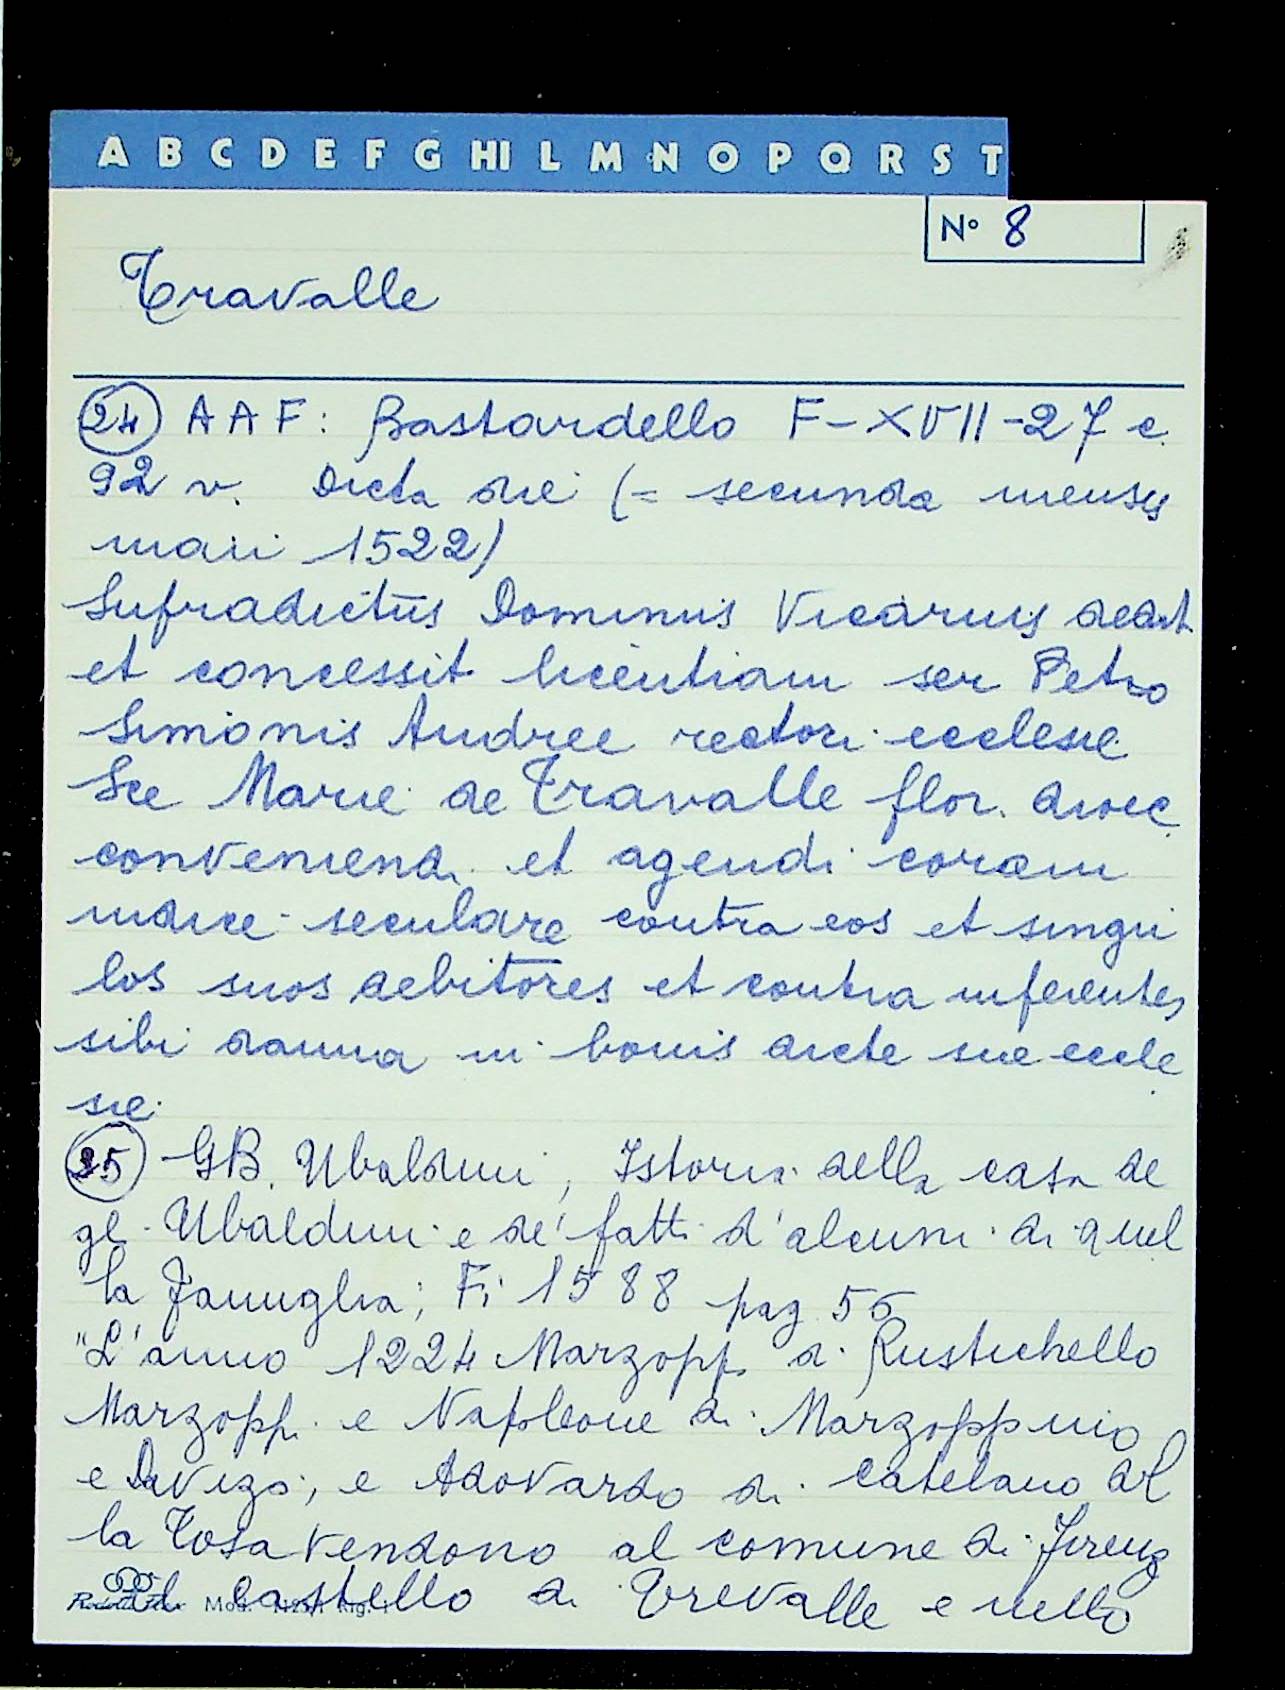 A B C D E F G HI L M N O P Q R S T
N° 8
Travalle
24 A A F: Bastardello F-XVII-27 c.
92 v. Dicta die (= secunda mensis
maii 1522)
Supradictus Dominus Vicarius dedit
et concessit licentiam ser Petro
Simonis Andree rectori ecclesie
Sce Marie de Travalle flor. dioec.
conveniendi et agendi coram
iudice seculare contra eos et singu
los suos debitores et contra inferentes
sibi danna in bonis dicte sue eccle
sie.
25 GB. Ubaldini, Istoria della casa de
gli Ubaldini e de' fatti d'alcuni di quel
la famiglia; Fi 1588 pag 56
"L'anno 1224 Marzoppi di Rustichello
Marzoppi e Napoleone di Marzoppino
e Divizo; e Adovardo di Catelano del
la Tosa vendono al comune di Firenz
il castello di Trevalle e nello
Mod.